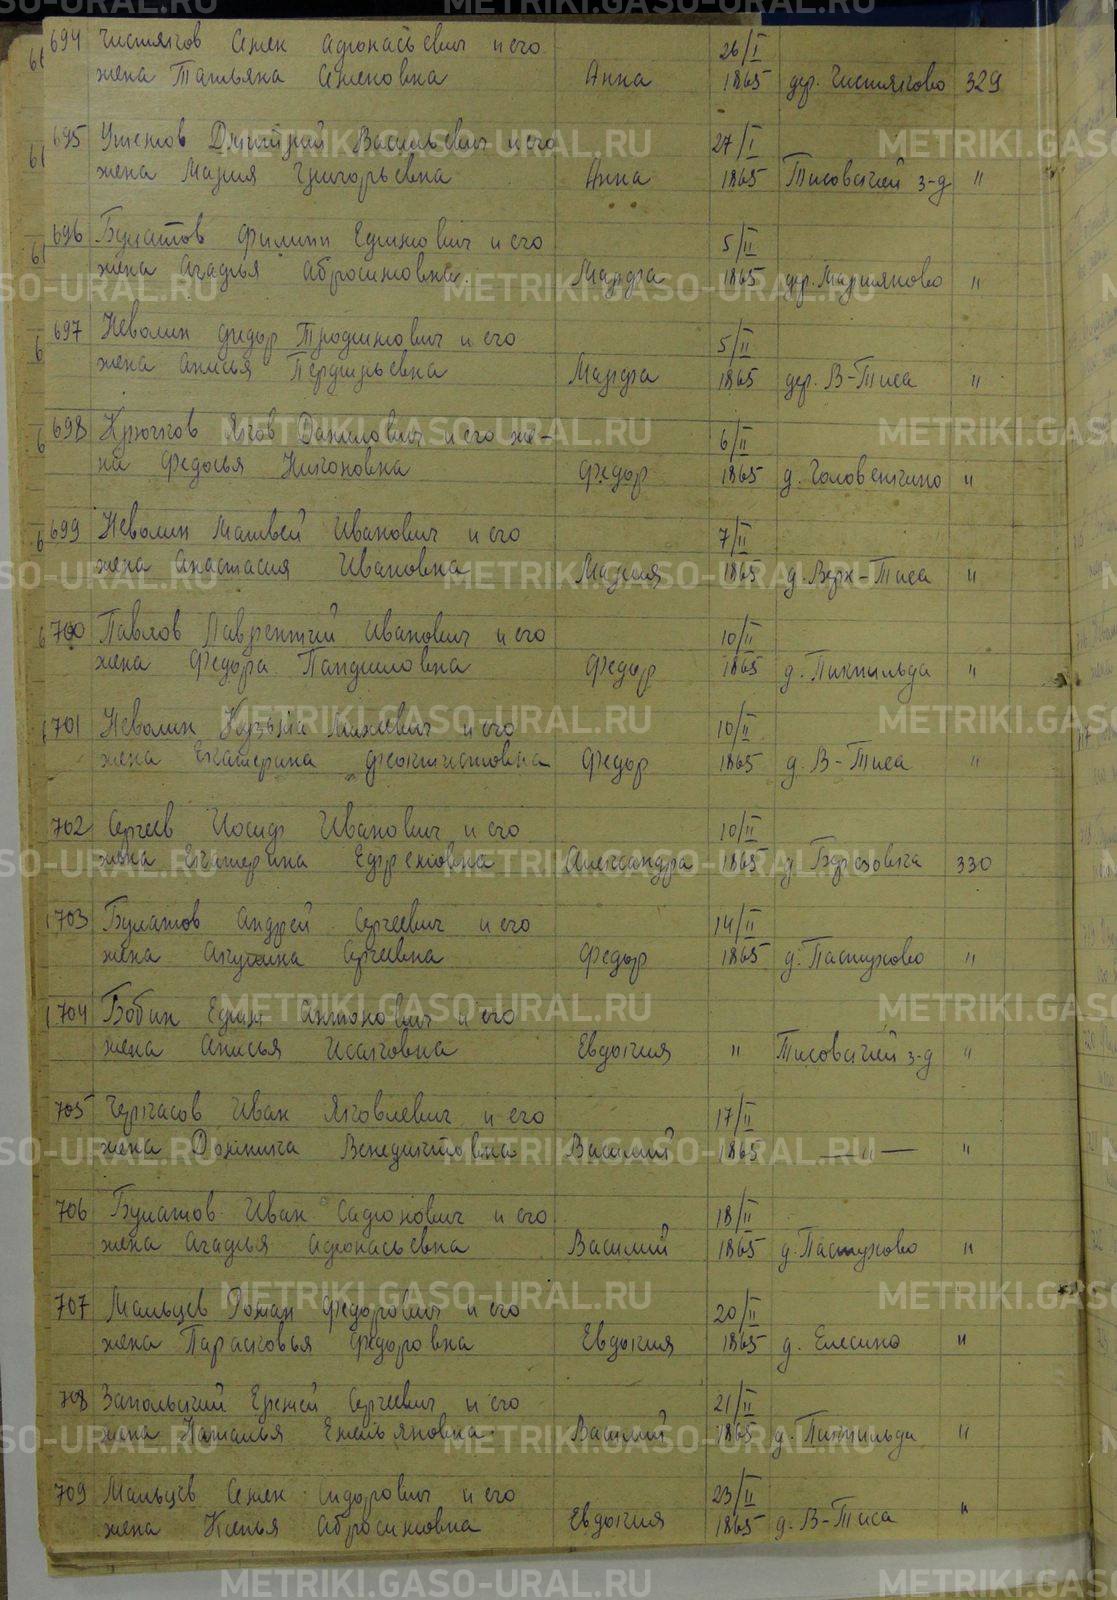 694 Чистяков Семен Афонасьевич и его 26/I
жена Татьяна Семеновна Анна 1865 дер. Чистяково 329
695 Ушенов Дмитрий Васильевич и его 27/I
жена Мария Григорьевна Анна 1865 Тисовский з-д "
696 Булатов Филипп Ефимович и его 5/II
жена Агафья Абросимовна Марфа 1865 дер. Марияново "
697 Неволин Федор Трофимович и его 5/II
жена Анисья Перфирьевна Марфа 1865 дер. В-Тиса "
698 Крючков Яков Данилович и его же- 6/II
на Федосья Никоновна Федор 1865 д. Головенкино "
699 Неволин Матвей Иванович и его 7/II
жена Анастасия Ивановна Мария 1865 д. Верх-Тиса "
700 Павлов Лаврентий Иванович и его 10/II
жена Федора Панфиловна Федор 1865 д. Пикпильда "
701 Неволин Кузьма Михеевич и его 10/II
жена Екатерина Феоктистовна Федор 1865 д. В-Тиса "
702 Сергеев Иосиф Иванович и его 10/II
жена Екатерина Ефремовна Александра 1865 д. Березовка 330
703 Булатов Андрей Сергеевич и его 14/II
жена Акулина Сергеевна Федор 1865 д. Пастухово "
704 Бобин Ефим Антонович и его
жена Анисья Исаковна Евдокия " Тисовский з-д "
705 Черкасов Иван Яковлевич и его 17/II
жена Домника Венедиктовна Василий 1865 — " — "
706 Булатов Иван Сафонович и его 18/II
жена Агафья Афонасьевна Василий 1865 д. Пастухово "
707 Мальцев Роман Федорович и его 20/II
жена Парасковья Федоровна Евдокия 1865 д. Елесино "
708 Запольский Еремей Сергеевич и его 21/II
жена Наталья Емельяновна Василий 1865 д. Пикпильда "
709 Мальцев Семен Сидорович и его 23/II
жена Ксенья Абросимовна Евдокия 1865 д. В-Тиса "
METRIKI.GASO-URAL.RU